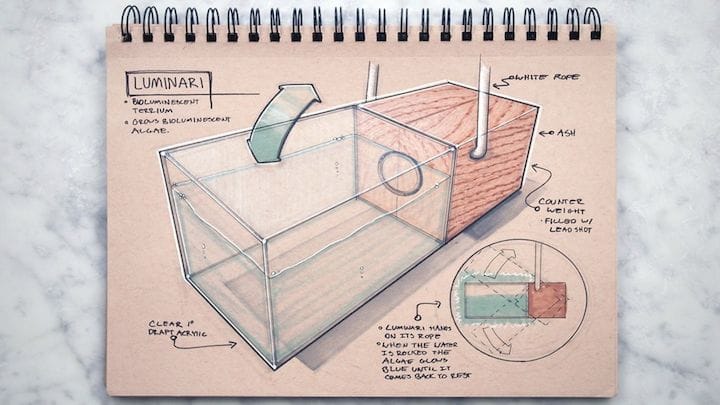 LUMINARI
• BIOLUMINESCENT
TERRIUM
• GROWS BIOLUMINESCENT
ALGAE.
WHITE ROPE
ASH
COUNTER
WEIGHT
- FILLED W/
LEAD SHOT
CLEAR 1°
DRAFT, ACRYLIC
LUMINARI HANGS
ON ITS ROPE
WHEN THE WATER
IS ROCKED THE
ALGAE GLOWS
BLUE UNTIL IT
COMES BACK TO REST